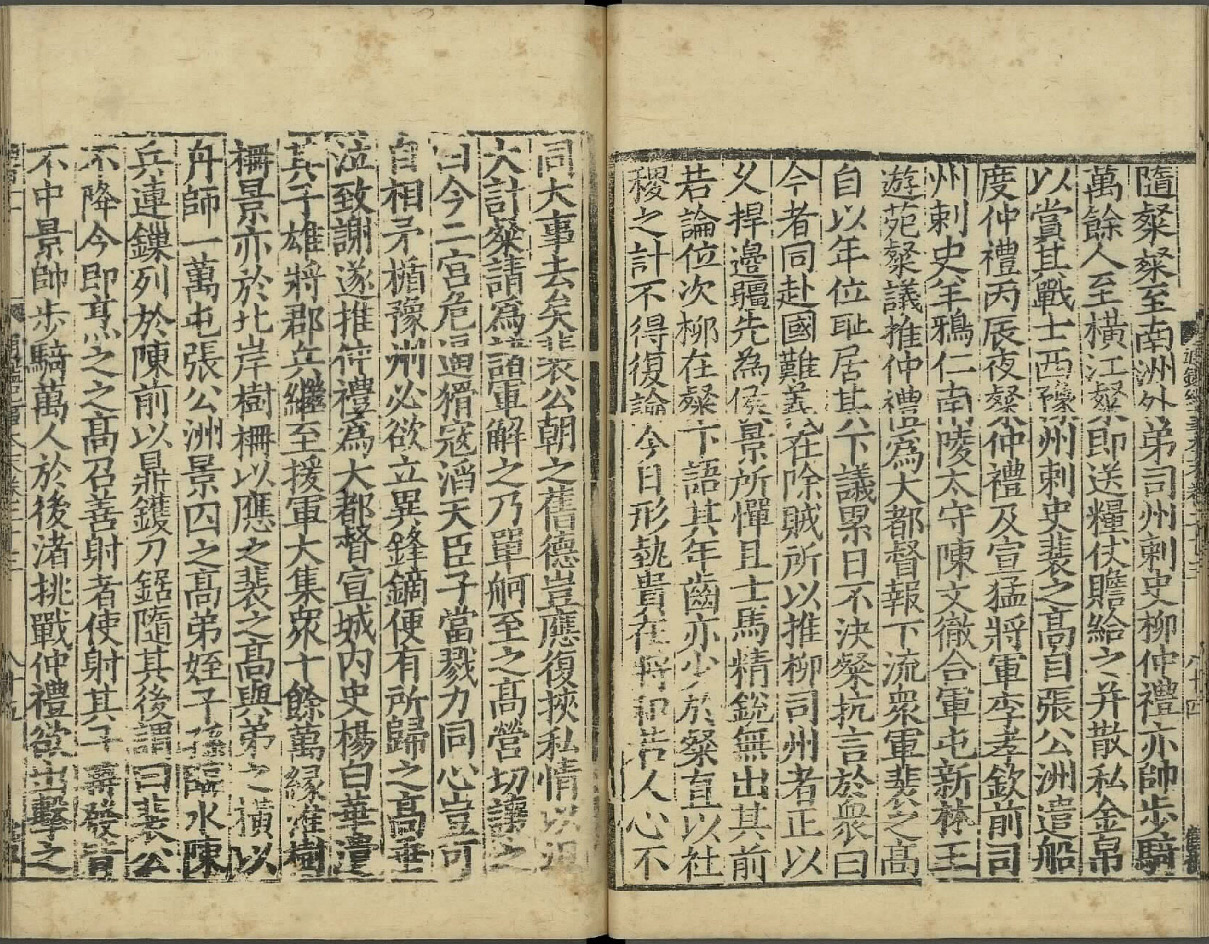 隨粲粲至南洲外弟司州刺史柳仲禮亦帥步騎
萬餘人至橫江粲即送糧仗贍給之并散私金帛
以賞其戰士西豫州刺史裴之高自張公洲遣船
度仲禮丙辰夜粲仲禮及宣猛將軍李孝欽前司
州刺史羊鴉仁南陵太守陳文徹合軍屯新林王
遊苑粲議推仲禮為大都督報下流衆軍裴之高
自以年位耻居其下議累日不決粲抗言於衆曰
今者同赴國難義在除賊所以推柳司州者正以
乆捍邊疆先為侯景所憚且士馬精銳無出其前
若論位次柳在粲下語其年齒亦少於粲直以社
稷之計不得復論今日形埶貴在將和若人心不
同大事去矣裴公朝之舊德豈應復挾私情以沮
大計粲請為諸軍解之乃單舸至之高營切讓之
曰今二宫危逼猾寇滔天臣子當戮力同心豈可
自相矛楯豫州必欲立異鋒鏑便有所歸之高垂
泣致謝遂推仲禮為大都督宣城內史楊白華遣
其子雄將郡兵繼至援軍大集衆十餘萬緣淮樹
柵景亦於北岸樹柵以應之裴之高與弟之橫以
舟師一萬屯張公洲景囚之高弟姪子孫臨水陳
兵連鏁列於陳前以鼎鑊刀鋸隨其後謂曰裴公
不降今即烹之之高召善射者使射其子再發皆
不中景帥步騎萬人於後渚挑戰仲禮欲出擊之